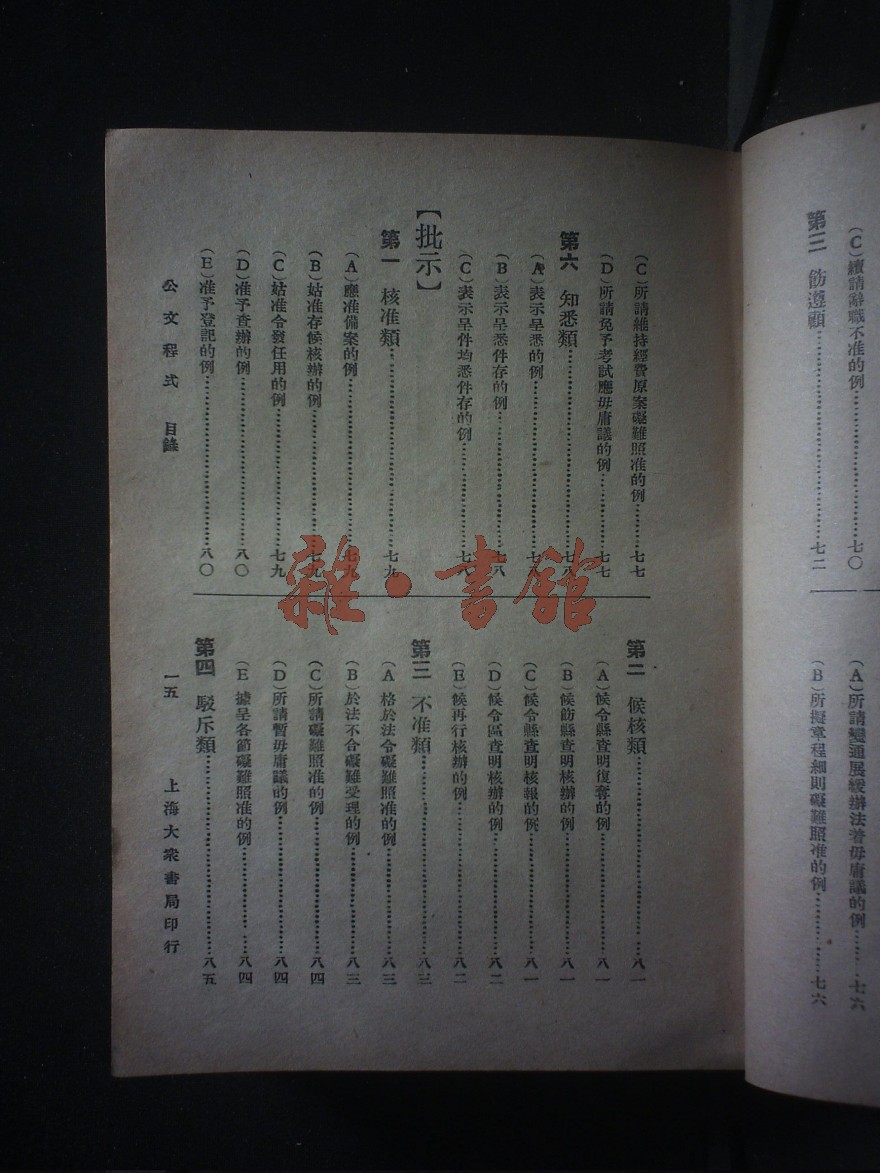 （C）續請辭職不准的例…………七〇
第三 飭遵類…………七二
（A）所請變通展緩辦法著毋庸議的例…………七六
（B）所擬章程細則礙難照准的例…………七六
（C）所請維持經費原案礙難照准的例…………七七
（D）所請免予考試應毋庸議的例…………七七
第六 知悉類…………七八
（A）表示呈悉的例…………七八
（B）表示呈悉件存的例…………七八
（C）表示呈件均悉件存的例…………七八
【批示】
第一 核准類…………七九
（A）應准備案的例…………七九
（B）姑准存候核辦的例…………七九
（C）姑准令發任用的例…………七九
（D）准予查辦的例…………八〇
（E）准予登記的例…………八〇
第二 候核類…………八一
（A）候令縣查明復奪的例…………八一
（B）候飭縣查明核辦的例…………八一
（C）候令縣查明核報的例…………八一
（D）候令區查明核辦的例…………八二
（E）候再行核辦的例…………八二
第三 不准類…………八三
（A）格於法令礙難照准的例…………八三
（B）於法不合礙難受理的例…………八三
（C）所請礙難照准的例…………八四
（D）所請暫毋庸議的例…………八四
（E）據呈各節礙難照准的例…………八四
第四 駁斥類…………八五
公文程式 目錄 一五 上海大衆書局印行
雜·書館